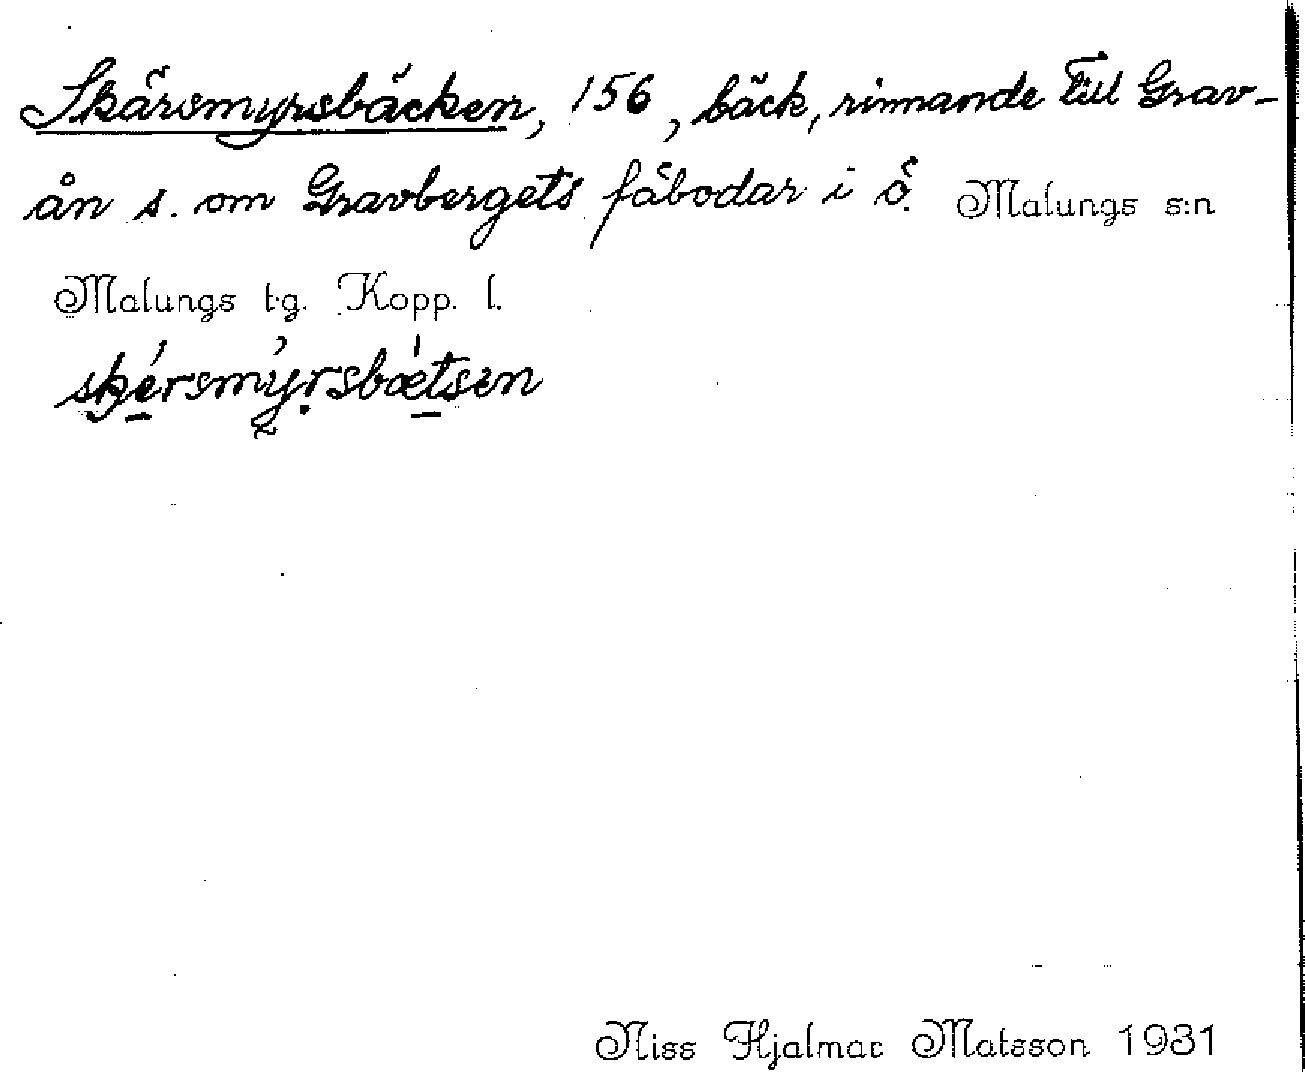 Skärsmyrsbäcken, 156, bäck, rinnande till Grav-
ån s. om Gravbergets fäbodar i ö. Malungs s:n
Malungs t·g. Kopp. l.
skérsmýrsbǽtsen
Niss Hjalmar Matsson 1931